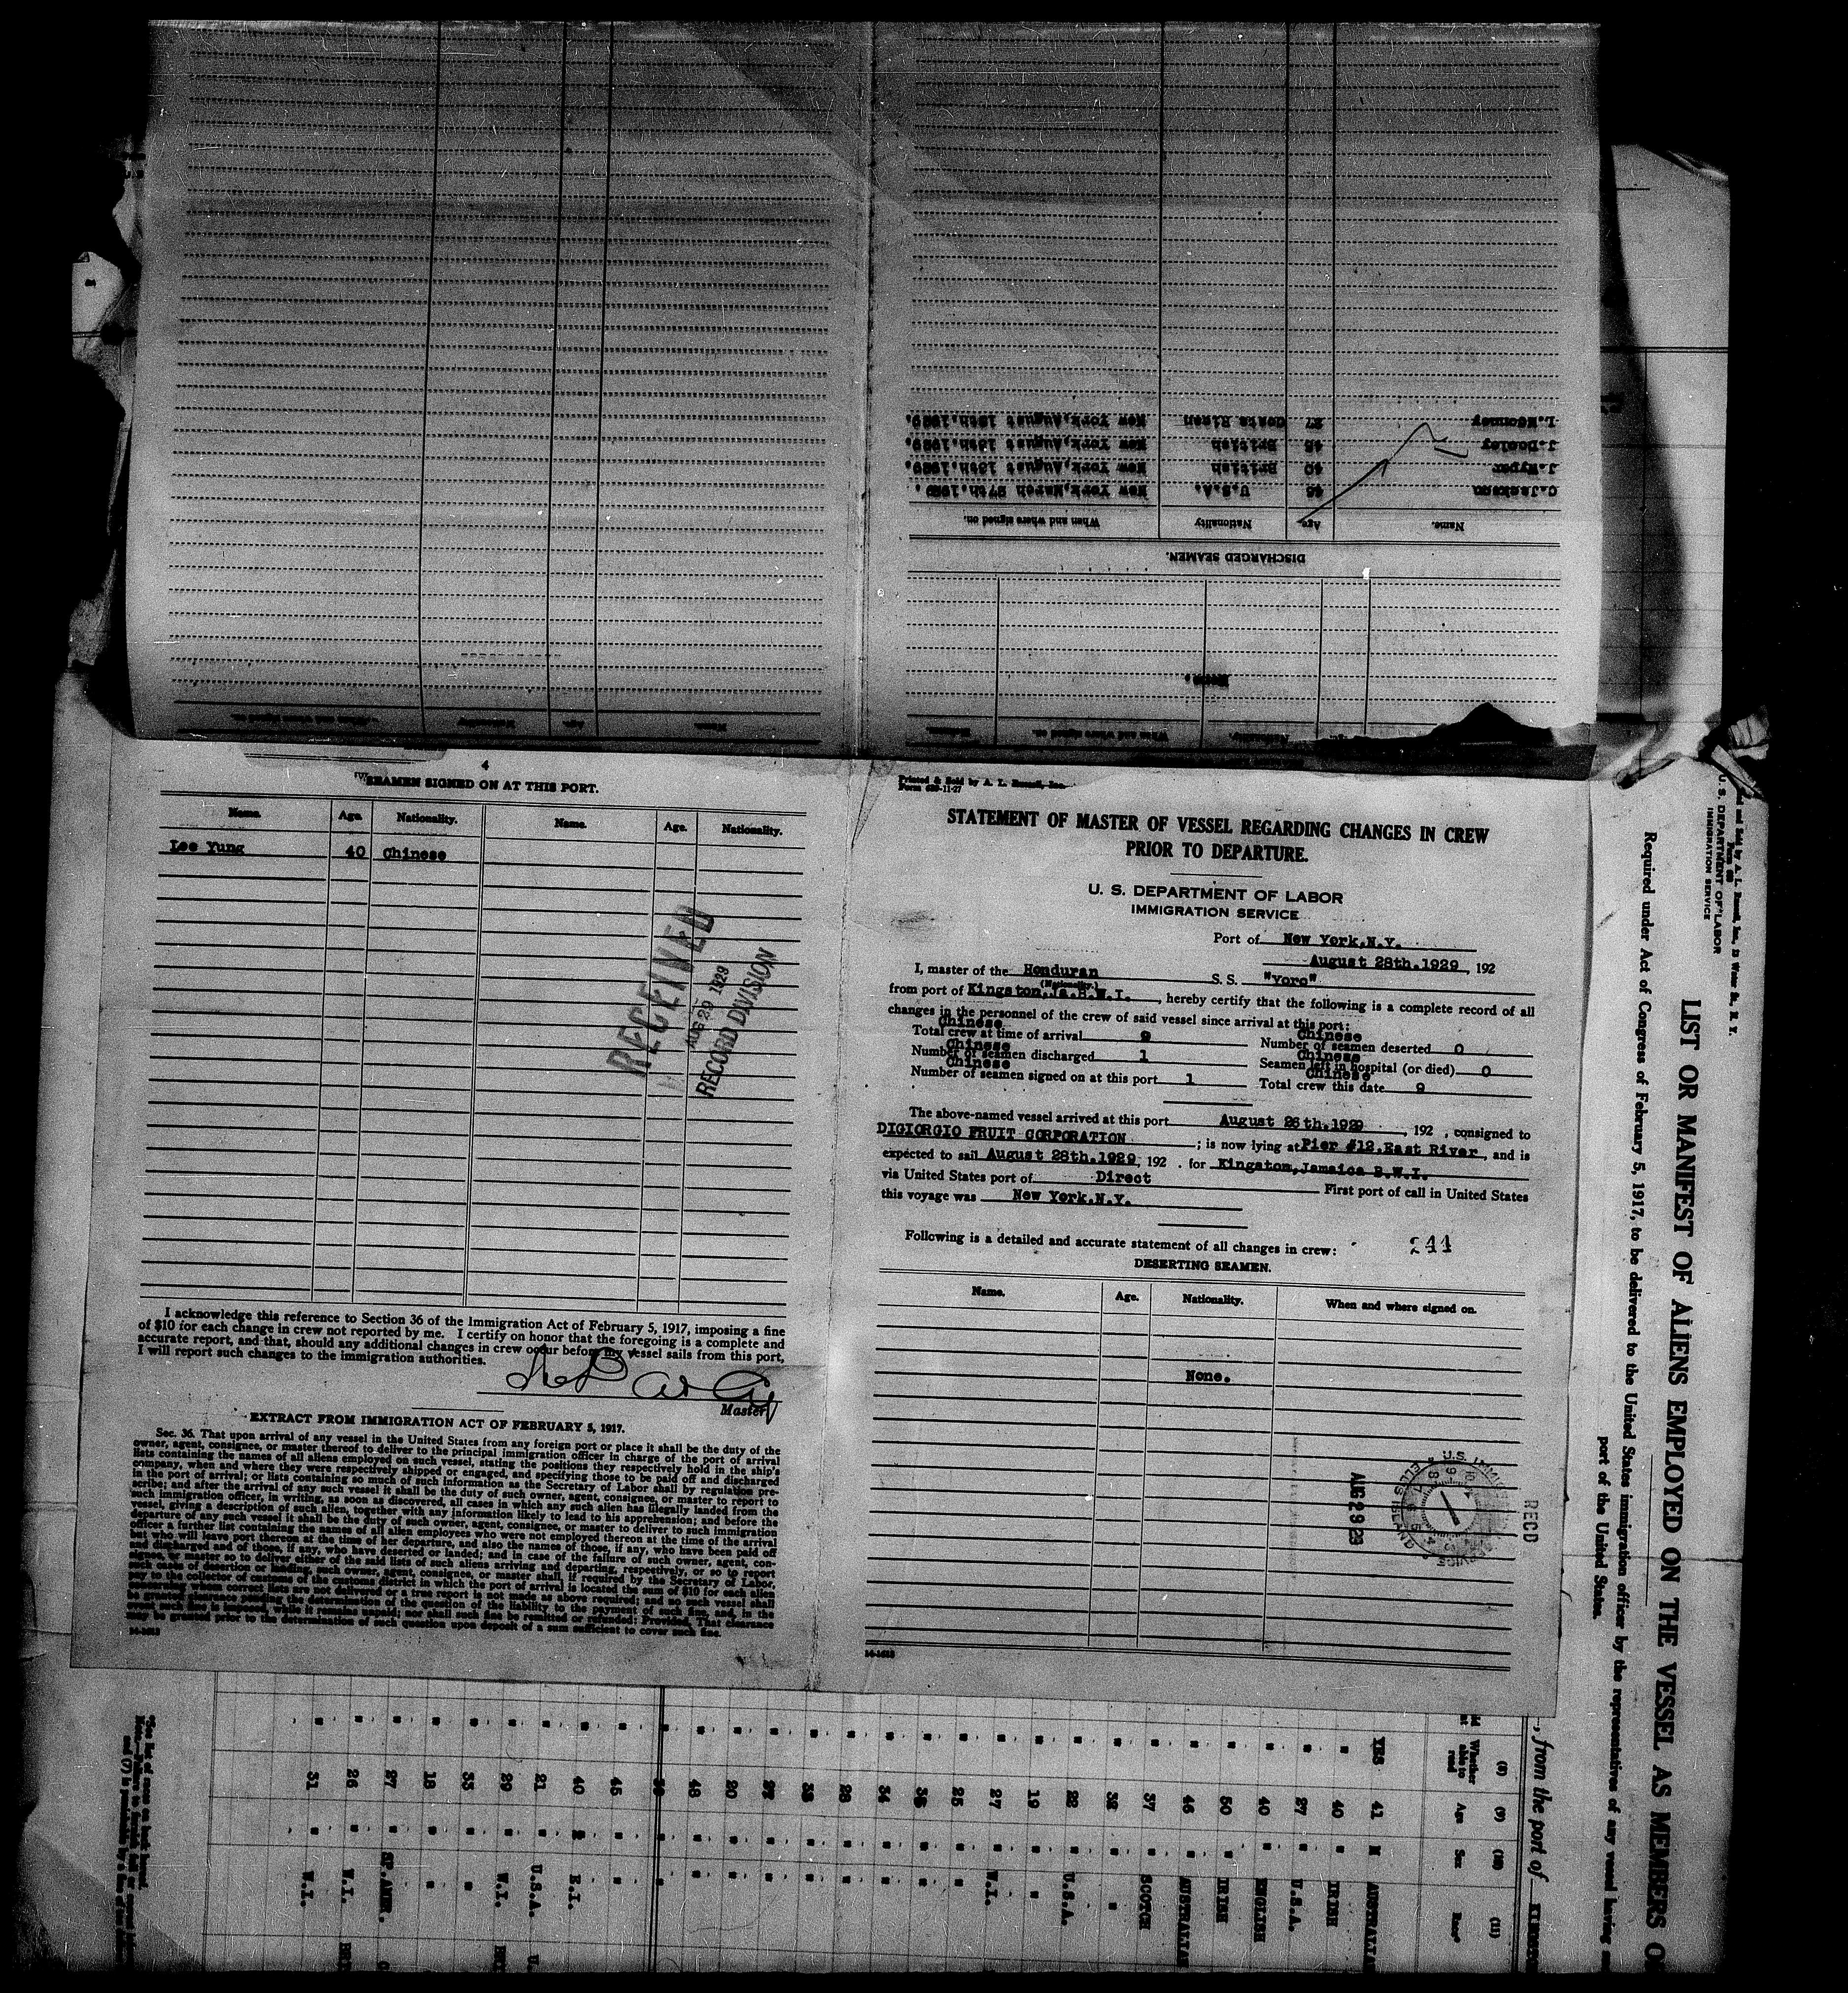 L.McConney 27 Costa Rican New York,August 15th,1929.
J.Dooley 45 British New York,August 15th,1929.
J.Wyper 40 British New York,August 15th,1929.
C.Jackson 46 U.S.A. New York,March 27th,1929.
Name. Age Nationality When and where signed on.
DISCHARGED SEAMEN.
None.
4
SEAMEN SIGNED ON AT THIS PORT.
Name. Age. Nationality. Name. Age. Nationality.
Lee Yung 40 Chinese
RECEIVED
AUG 29 1929
RECORD DIVISION
I acknowledge this reference to Section 36 of the Immigration Act of February 5, 1917, imposing a fine
of $10 for each change in crew not reported by me. I certify on honor that the foregoing is a complete and
accurate report, and that, should any additional changes in crew occur before my vessel sails from this port,
I will report such changes to the immigration authorities.
Master
EXTRACT FROM IMMIGRATION ACT OF FEBRUARY 5, 1917.
Sec. 36. That upon arrival of any vessel in the United States from any foreign port or place it shall be the duty of the
owner, agent, consignee, or master thereof to deliver to the principal immigration officer in charge of the port of arrival
lists containing the names of all aliens employed on such vessel, stating the positions they respectively hold in the ship's
company, when and where they were respectively shipped or engaged, and specifying those to be paid off and discharged
in the port of arrival; or lists containing so much of such information as the Secretary of Labor shall by regulation pre-
scribe; and after the arrival of any such vessel it shall be the duty of such owner, agent, consignee, or master to report to
such immigration officer, in writing, as soon as discovered, all cases in which any such alien has illegally landed from the
vessel, giving a description of such alien, together with any information likely to lead to his apprehension; and before the
departure of any such vessel it shall be the duty of such owner, agent, consignee, or master to deliver to such immigration
officer a further list containing the names of all alien employees who were not employed thereon at the time of the arrival
but who will leave port thereon at the time of her departure, and also the names of those, if any, who have been paid off
and discharged and of those, if any, who have deserted or landed; and in case of the failure of such owner, agent, con-
signee, or master so to deliver either of the said lists of such aliens arriving and departing, respectively, or so to report
such cases of desertion or landing, such owner, agent, consignee, or master shall, if required by the Secretary of Labor,
pay to the collector of customs of the customs district in which the port of arrival is located the sum of $10 for each alien
concerning whom correct lists are not delivered or a true report is not made as above required; and no such vessel shall
be granted clearance pending the determination of the question of the liability to the payment of such fine, and, in the
event such fine is imposed, while it remains unpaid; nor shall such fine be remitted or refunded: Provided, That clearance
may be granted prior to the determination of such question upon deposit of a sum sufficient to cover such fine.
Printed & Sold by A. L. Russell, Inc.
STATEMENT OF MASTER OF VESSEL REGARDING CHANGES IN CREW
PRIOR TO DEPARTURE.
U. S. DEPARTMENT OF LABOR
IMMIGRATION SERVICE
Port of New York,N.Y.
August 28th.1929, 192
I, master of the Honduran S. S. "Yoro"
(Nationality.)
from port of Kingston,Ja.B.W.I., hereby certify that the following is a complete record of all
changes in the personnel of the crew of said vessel since arrival at this port:
Chinese Chinese
Total crew at time of arrival 9 Number of seamen deserted 0
Chinese Chinese
Number of seamen discharged 1 Seamen left in hospital (or died) 0
Chinese Chinese
Number of seamen signed on at this port 1 Total crew this date 9
The above-named vessel arrived at this port August 26th.1929, 192 , consigned to
DIGIORGIO FRUIT CORPORATION ; is now lying at Pier #12.East River, and is
expected to sail August 28th.1929, 192 . for Kingston,Jamaica B.W.I.
via United States port of Direct First port of call in United States
this voyage was New York.N.Y.
Following is a detailed and accurate statement of all changes in crew: 244
DESERTING SEAMEN.
Name. Age. Nationality. When and where signed on.
None.
AUG 29 29
U.S. IMMIG. SERVICE ELLIS ISLAND
RECD
U. S. DEPARTMENT OF LABOR
IMMIGRATION SERVICE
LIST OR MANIFEST OF ALIENS EMPLOYED ON THE VESSEL AS MEMBERS O
Required under Act of Congress of February 5, 1917, to be delivered to the United States immigration officer by the representatives of any vessel having
port of the United States.
, from the port of
(8) (9) (10) (11)
Whether able to read Age Sex Race*
YES 41 M
" 40 " IRISH
" 27 " U.S.A.
" 40 " ENGLISH
" 50 " IRISH
" 46 "
" 37 " SCOTCH
" 32 " "
" 22 " U.S.A.
" 19 " "
" 27 " W.I.
" 25 " "
" 36 " "
" 34 " "
" 28 " "
" 38 " "
" " "
" 20 " "
" 48 " "
" " "
" 45 " "
" 40 E.I.
" 21 " U.S.A.
" 29 " W.I.
" 33 " "
" 18 " "
" 27 " SP.AMR.
" 26 " W.I.
" 31 " W.I.